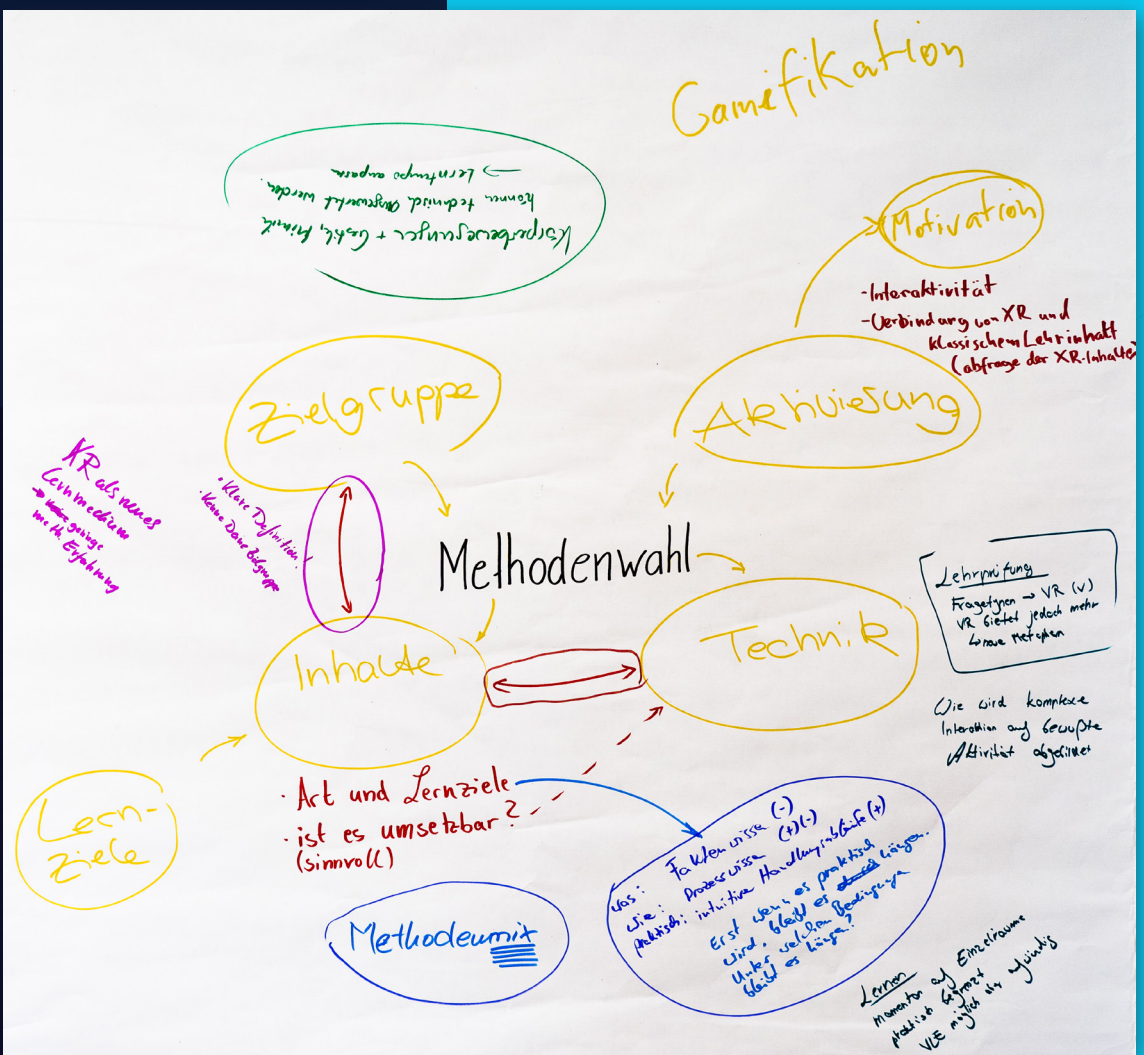 Gamifikation
Körperbewegungen + Gestik, Mimik
können technisch ausgewertet werden.
→ Lerntempo anpassen
Motivation
- Interaktivität
- Verbindung von XR und
klassischem Lehrinhalt
(abfrage der XR-Inhalte)
Zielgruppe
Aktivierung
XR als neues
Lernmedium
→ geringe
meth. Erfahrung
• Klare Definition!
• Kenne Deine Zielgruppe
Methodenwahl
Lehrprüfung
Fragetypen → VR (v)
VR bietet jedoch mehr
↳ neue Metaphern
Inhalte
Technik
Wie wird komplexe
Interaktion auf bewußte
Aktivität abgebildet
Lern-
ziele
• Art und Lernziele
• ist es umsetzbar?
(sinnvoll)
was: Faktenwissen (-)
wie: Prozesswissen (+)(-)
praktisch: intuitive Handlungsabläufe (+)
Erst wenn es praktisch
wird, bleibt es hängen.
Unter welchen Bedingungen
bleibt es hängen?
Methodenmix
Lernen
momentan auf Einzelräume
praktisch begrenzt
VLE möglich aber aufwändig